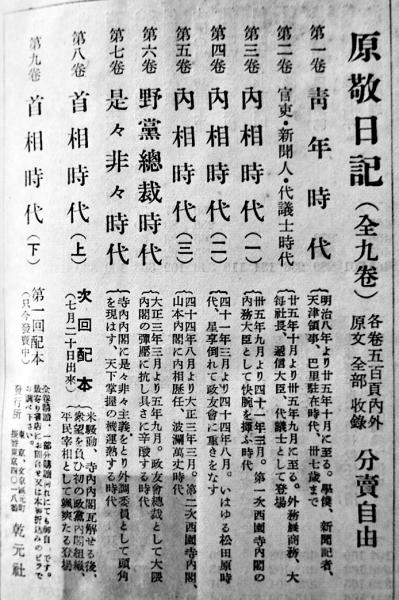 原敬日記（全九卷）各卷五百頁內外 原文全部收錄 分賣自由
第一卷 靑年時代
明治八年より廿五年十月に至る。學僕、新聞記者、
天津領事、巴里駐在時代、卅七歲まで
第二卷 官吏・新聞人・代議士時代
廿五年十月より卅五年九月に至る。外務農商務、大
每社長、遞信大臣、代議士として登場
第三卷 內相時代（一）
卅五年九月より四十一年三月。第一次西園寺內閣の
內務大臣として快腕を揮ふ時代
第四卷 內相時代（二）
四十一年三月より四十四年八月。いはゆる松田原時
代、星享倒れて政友會に重きをなす
第五卷 內相時代（三）
四十四年八月より大正三年三月。第二次西園寺內閣、
山本內閣に內相歷任、波瀾萬丈時代
第六卷 野黨總裁時代
大正三年三月より五年九月。政友會總裁として大隈
內閣の彈壓に抗し具さに辛酸する時代
第七卷 是々非々時代
寺內內閣に是々非々主義をとり外調委員として頭角
を現はす、天下掌握の被運熟する時代
第八卷 首相時代（上）
次回配本
（七月二十日出來）
米騷動、寺內內閣瓦解せる後、
衆望を負ひ初の政黨內閣組織、
平民宰相として颯爽たる登場
第九卷 首相時代（下）
第一回配本
（只今發賣中）
全卷購讀、一部分購讀いづれにも御自由です。
最寄り書店にお問合せ又は本御折込みのビラで
お調べ下さい。
發行所 東京・文京區元町
振替東京六〇一八番 乾元社